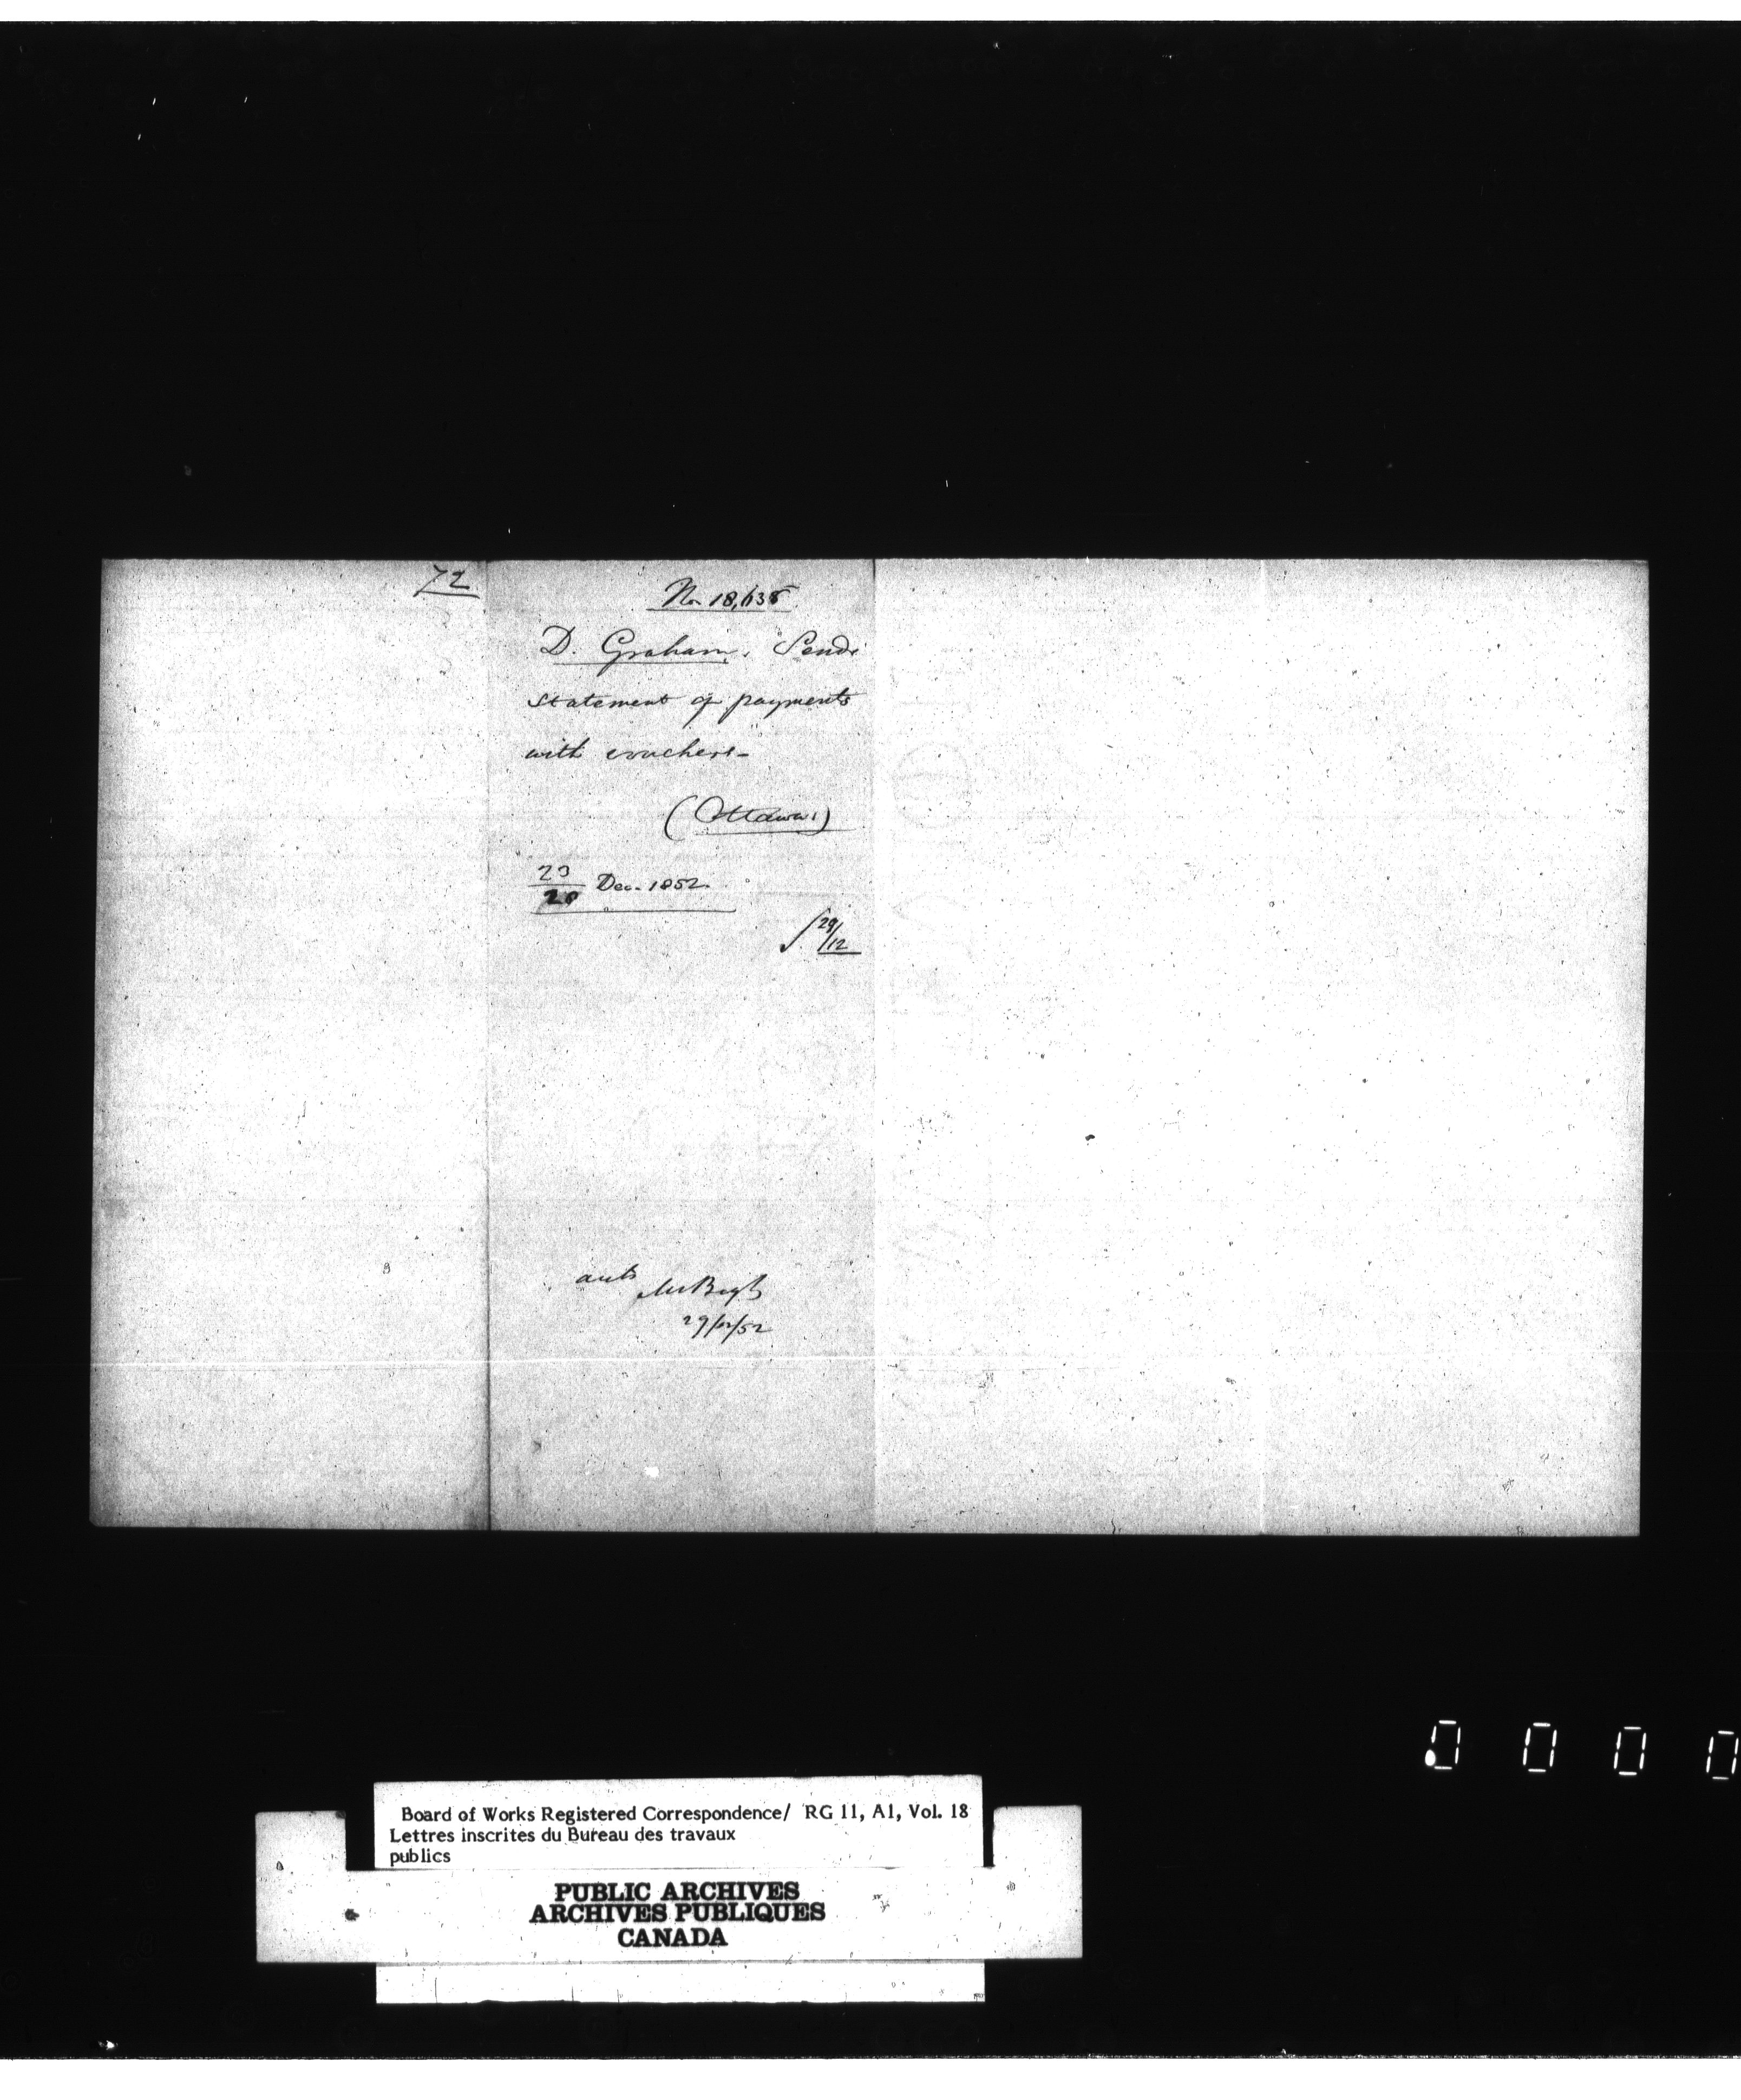 72
No 18,638
D. Graham. Sends
statement of payments
with vouchers-
(Ottawa)
23
28 Dec. 1852.
29/12
29/12/52
Board of Works Registered Correspondence/ RG 11, A1, Vol. 18
Lettres inscrites du Bureau des travaux
publics
PUBLIC ARCHIVES
ARCHIVES PUBLIQUES
CANADA
0 0 0 0